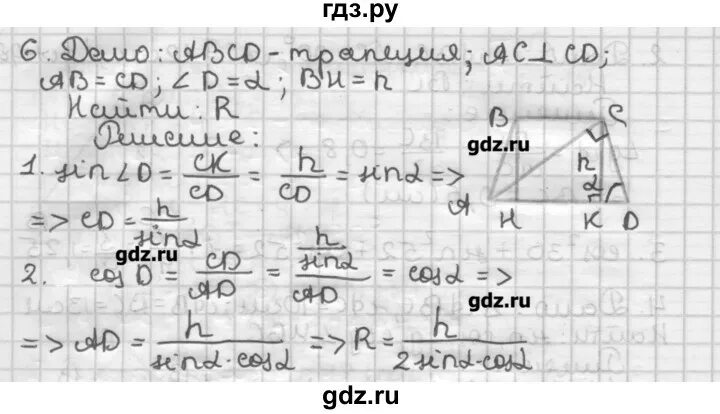 гдз.ру
6. Дано: ABCD - трапеция; AC⊥CD;
AB = CD; ∠D = α; BH = h
Найти: R
Решение:
1. sin∠D = CK/CD = h/CD = sinα =>
=> CD = h/sinα
2. cosD = CD/AD = (h/sinα)/AD = cosα =>
=> AD = h/(sinα·cosα) => R = h/(2sinα·cosα)
B C
h
α
A H K D
gdz.ru
gdz.ru
gdz.ru
gdz.ru
gdz.ru